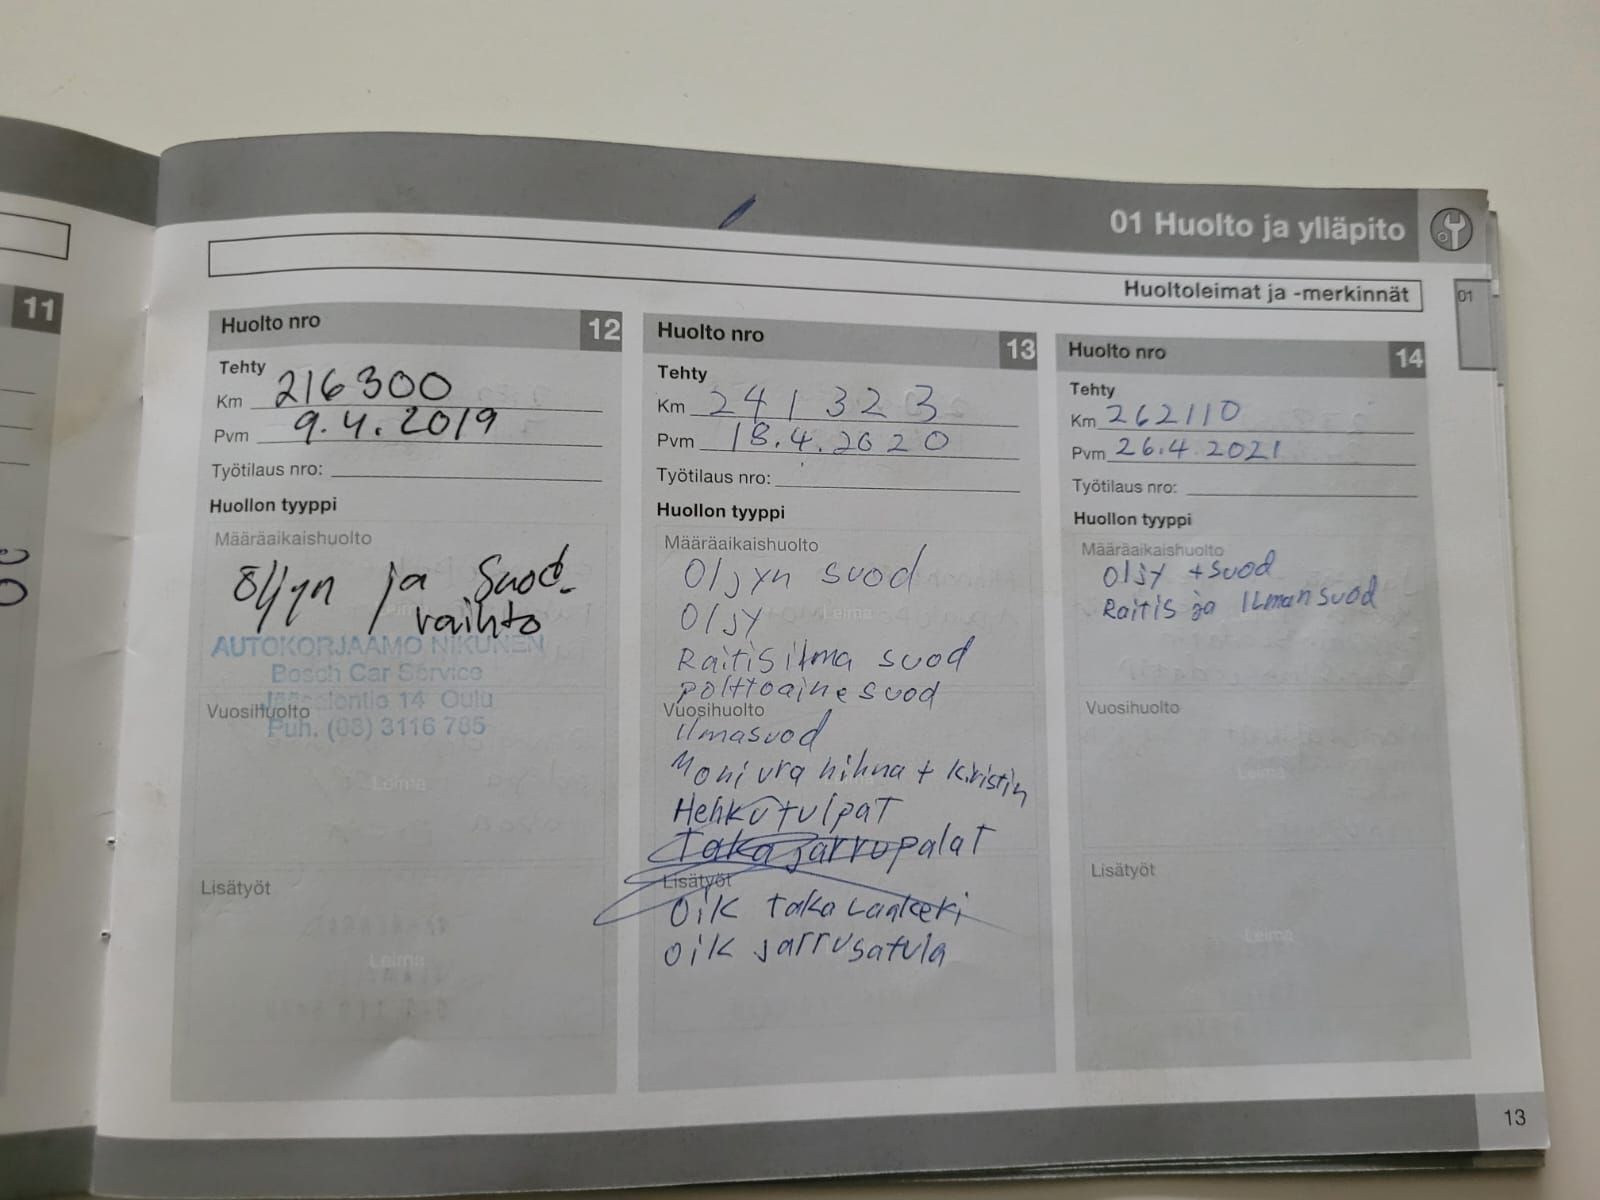 01 Huolto ja ylläpito
Huoltoleimat ja -merkinnät
01
11
Huolto nro 12
Tehty
Km 216300
Pvm 9.4.2019
Työtilaus nro:
Huollon tyyppi
Määräaikaishuolto
öljyn ja Suod.
vaihto
Leima
AUTOKORJAAMO NIKUNEN
Bosch Car Service
14 Oulu
Puh. (08) 3116 785
Vuosihuolto
Leima
Lisätyöt
Leima
Huolto nro 13
Tehty
Km 241323
Pvm 18.4.2020
Työtilaus nro:
Huollon tyyppi
Määräaikaishuolto
Oljyn suod
Oljy
Leima
Raitisilma suod
polttoaine suod
Vuosihuolto
Ilmasuod
Moniura hihna + kiristin
Hehkutulpat
Taka jarrupalat
Lisätyöt
Oik taka Laakeri
Oik jarrusatula
Huolto nro 14
Tehty
Km 262110
Pvm 26.4.2021
Työtilaus nro:
Huollon tyyppi
Määräaikaishuolto
Oljy + suod
Raitis ja Ilman suod
Vuosihuolto
Leima
Lisätyöt
Leima
13